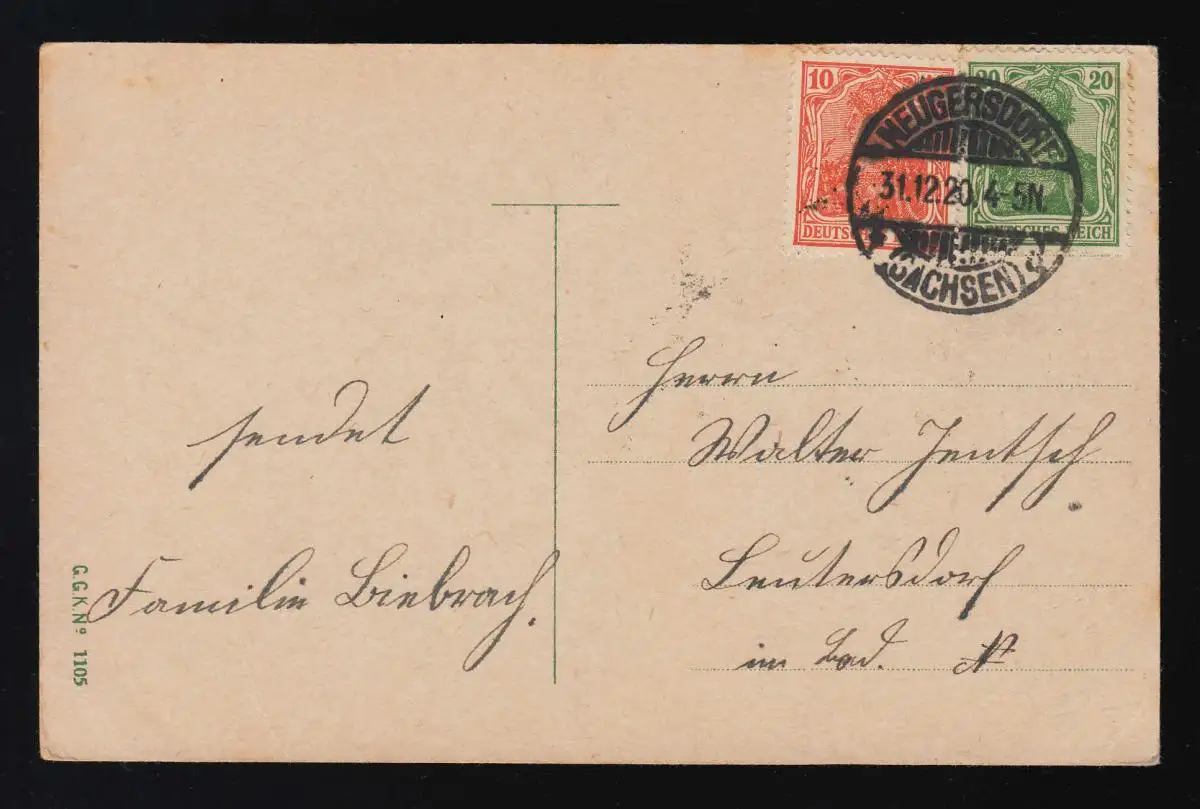 10
20 20
DEUTSCHES REICH
NEUGERSDORF
31.12.20. 4-5N.
(SACHSEN)
Herrn
Walter Jentsch
Leutersdorf
im Bad.
sendet
Familie Biebrach.
G.G.K. Nº 1105